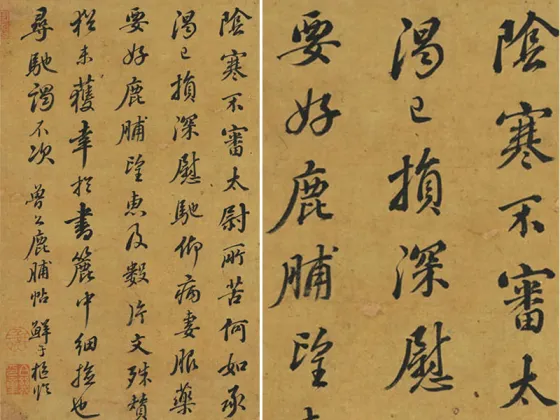 陰寒不審太尉所苦何如承
渴已損深慰馳仰病妻服藥
要好鹿脯望惠及數片文殊贊
猶未獲幸於書簏中細撿也
尋馳謁不次 魯公鹿脯帖 鮮于樞臨
陰寒不審太
渴已損深慰
要好鹿脯望